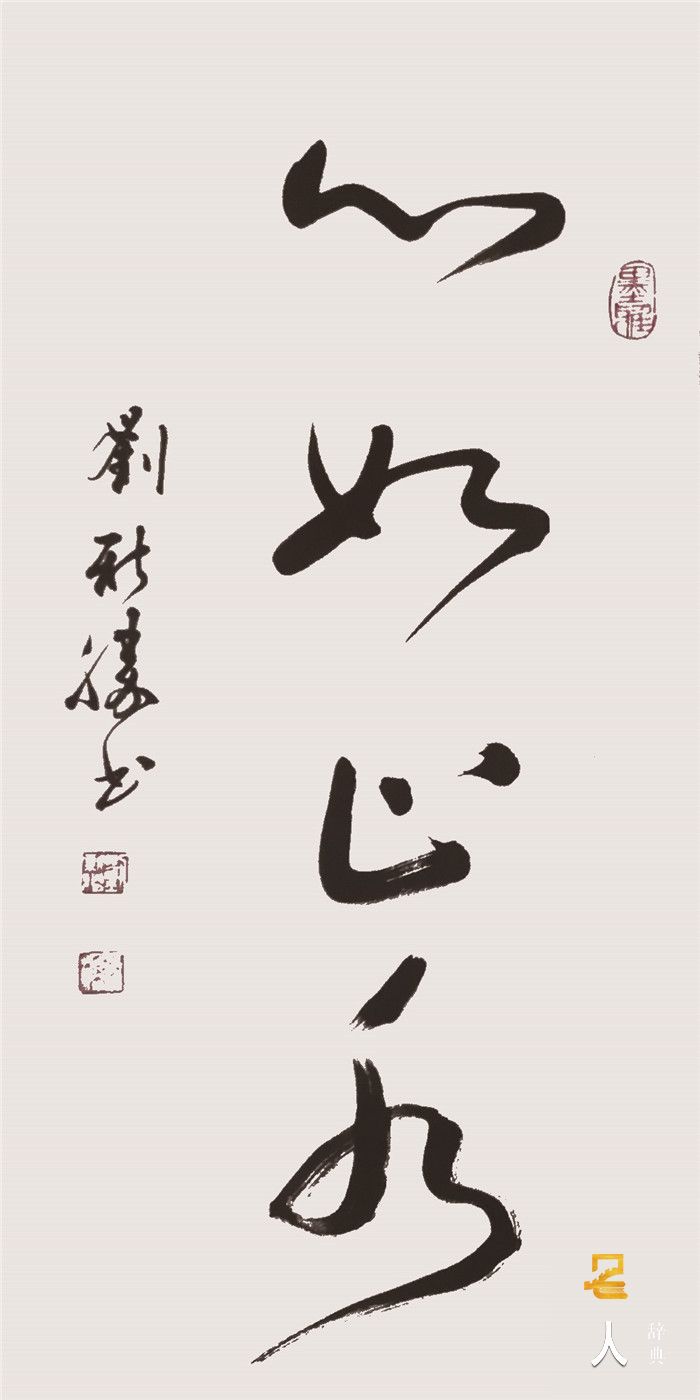 心如止水
劉新勝书
名人
辞典